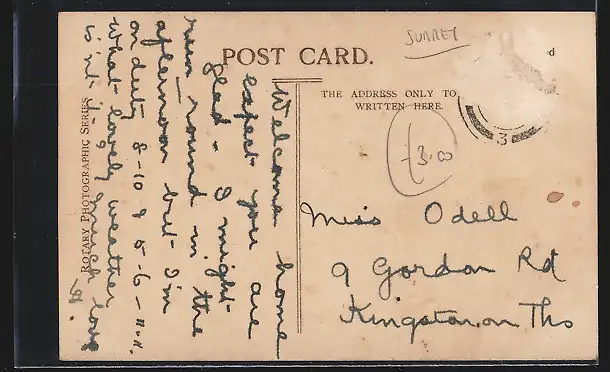 SURREY
POST CARD.
THE ADDRESS ONLY TO
WRITTEN HERE.
d
3
£3.00
Miss Odell
9 Gordon Rd
Kingston on Ths
Welcome home
expect you are
glad - I might
run round in the
afternoon but I'm
on duty 8-10 & 5-6-
What lovely weather
isn't it - Much love
ROTARY PHOTOGRAPHIC SERIES